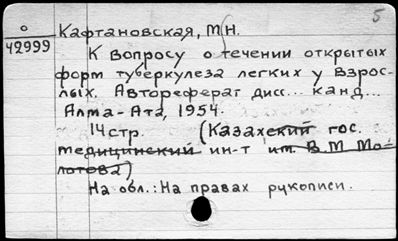 5
о
42999
Кафтановская, М Н.
К вопросу о течении открытых
форм туберкулеза легких у взрос-
лых. Автореферат дисс... канд...
Алма-Ата, 1954.
14 стр. (Казахский гос.
медицинский ин-т им. В М Мо-
лотова)
На обл.: На правах рукописи.